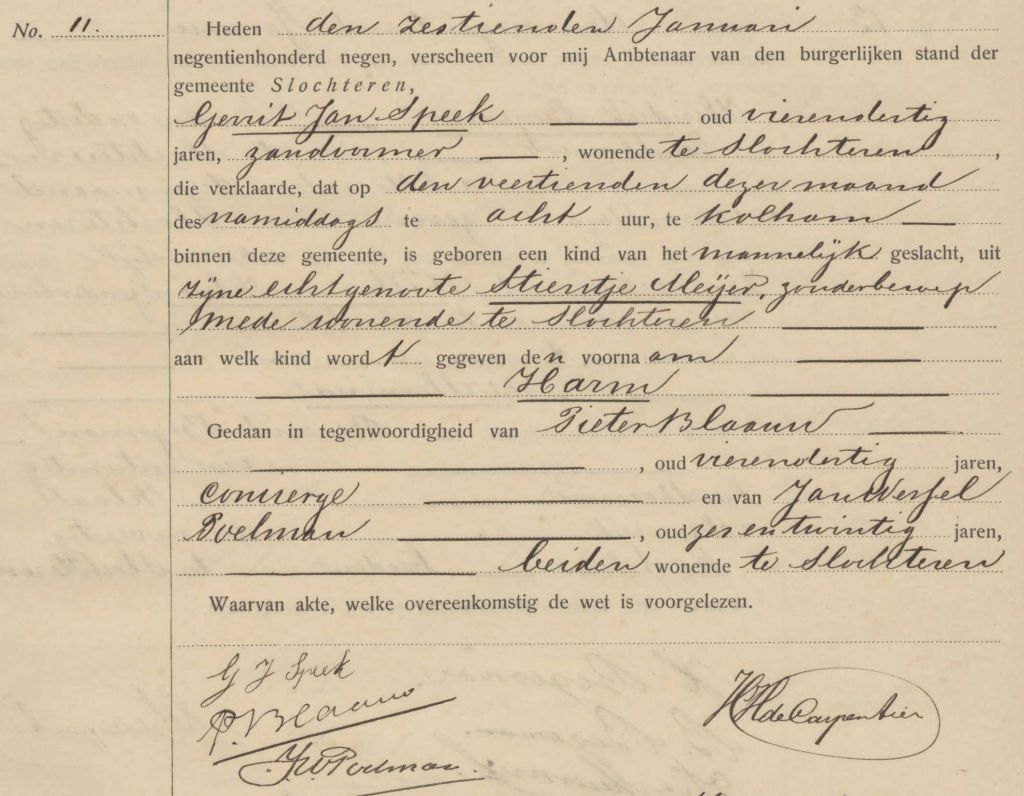 No. 11.
Heden den zestienden Januari
negentienhonderd negen, verscheen voor mij Ambtenaar van den burgerlijken stand der
gemeente Slochteren,
Gerrit Jan Speek oud vierendertig
jaren, zandvormer, wonende te Slochteren,
die verklaarde, dat op den veertienden dezer maand
des namiddags te acht uur, te Kolham
binnen deze gemeente, is geboren een kind van het mannelijk geslacht, uit
zijne echtgenoote Stientje Meijer, zonder beroep
mede wonende te Slochteren
aan welk kind wordt gegeven den voornaam
Harm
Gedaan in tegenwoordigheid van Pieter Blaauw
, oud vierendertig jaren,
concierge en van Jan Wessel
Poelman, oud zes en twintig jaren,
beiden wonende te Slochteren
Waarvan akte, welke overeenkomstig de wet is voorgelezen.
G J Speek
P. Blaauw
J W Poelman.
HH de Carpentier